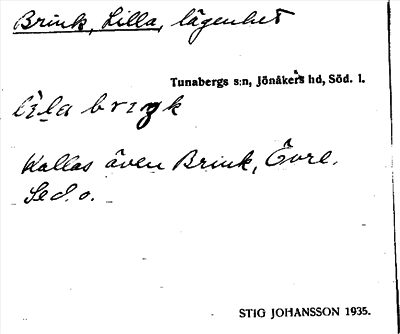 Brink, Lilla, lägenhet
Tunabergs s:n, Jönåkers hd, Söd. l.
lila briŋk
Kallas även Brink, Övre.
Se d. o.
STIG JOHANSSON 1935.